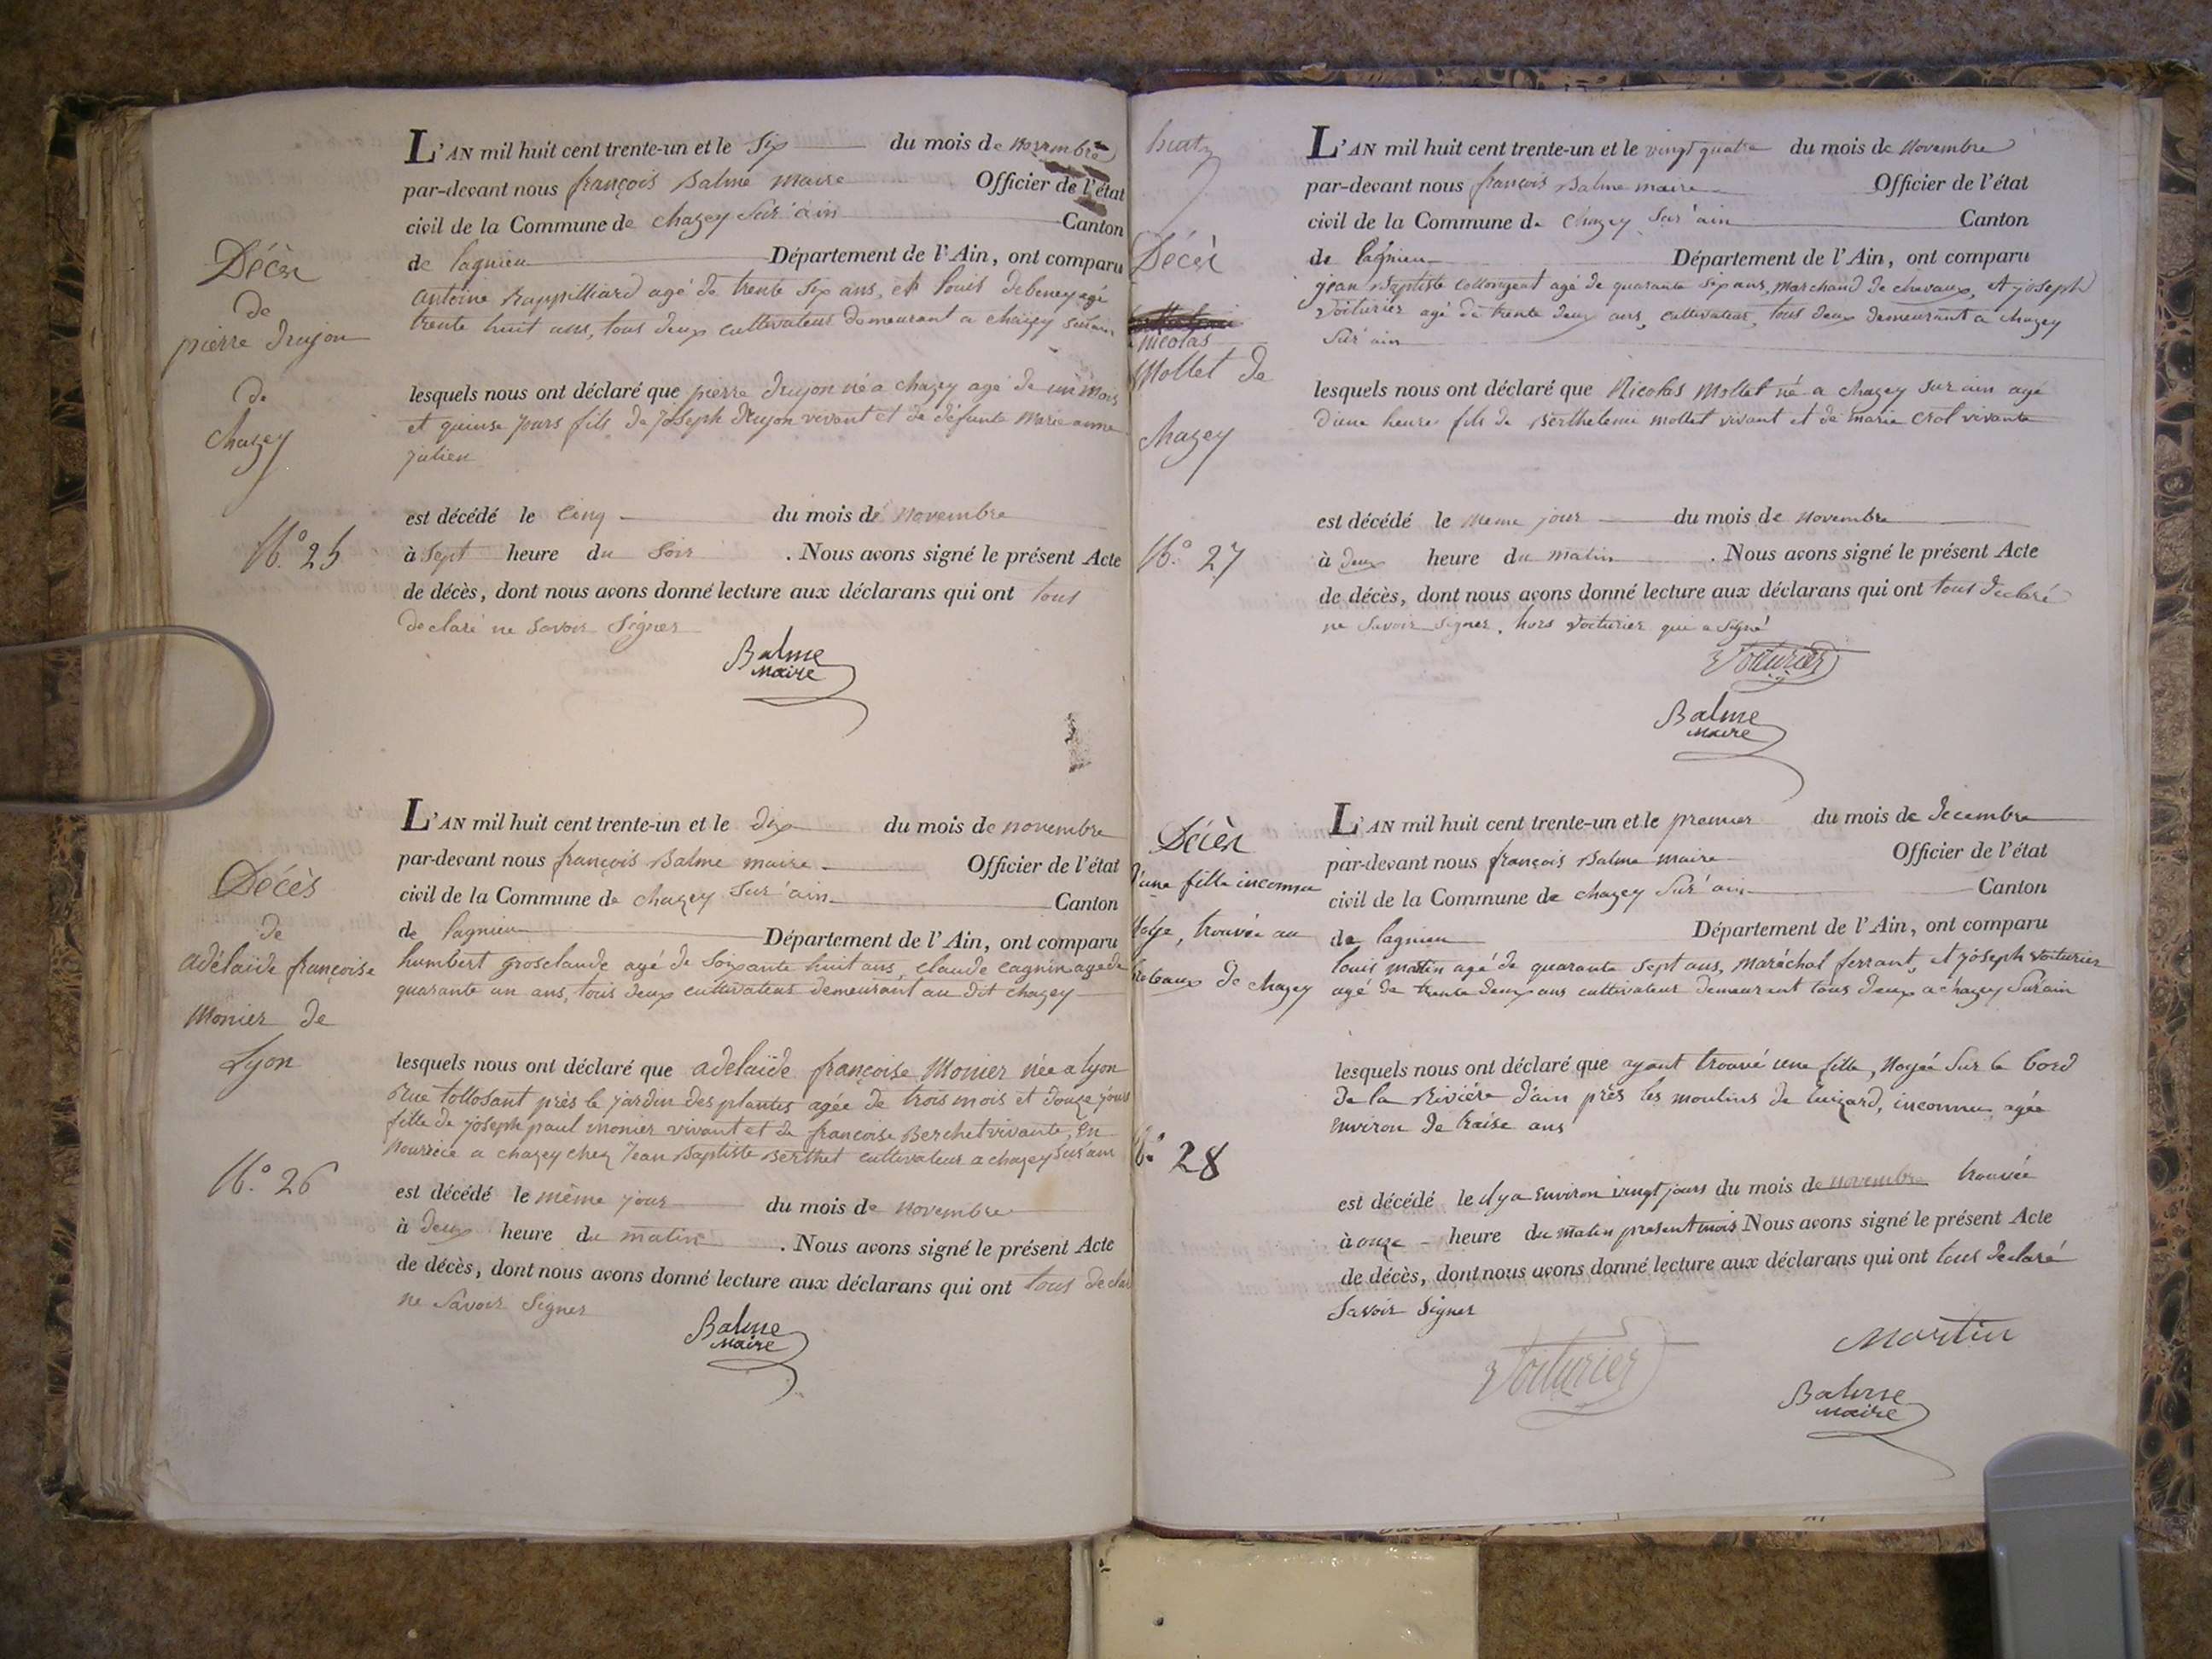 Décès
de
pierre Drujon
de
chazey
N.° 25
L'AN mil huit cent trente-un et le Six du mois de novembre
par-devant nous françois Balme maire Officier de l'état
civil de la Commune de chazey Sur'ain Canton
de lagnieu Département de l'Ain, ont comparu
antoine Rappilliard agé de trente Six ans, et louis debeney agé
trente huit ans, tous deux cultivateur demeurant a chazey surain
lesquels nous ont déclaré que pierre drujon né a chazey agé de un mois
et quinse jours fils de joseph Drujon vivant et de défunte marie anne
julien
est décédé le Cinq du mois de novembre
à Sept heure du Soir . Nous avons signé le présent Acte
de décès, dont nous avons donné lecture aux déclarans qui ont tous
declaré ne Savoir Signer
Balme
maire
Décès
de
adélaïde françoise
Monier de
Lyon
N.° 26
L'AN mil huit cent trente-un et le dix du mois de novembre
par-devant nous françois Balme maire Officier de l'état
civil de la Commune de chazey Sur'ain Canton
de lagnieu Département de l'Ain, ont comparu
humbert grosclaude agé de Soixante huit ans, claude cagnin age de
quarante un ans, tous deux cultivateur demeurant au dit chazey
lesquels nous ont déclaré que adelaïde françoise Monier née a lyon
Rue tollosant près le jardin des plantes agée de trois mois et douze jours
fille de joseph paul monier vivant et de françoise Berchet vivante, En
nourrice a chazey chez Jean Baptiste Berthet cultivateur a chazey Sur'ain
est décédé le même jour du mois de novembre
à deux heure du matin . Nous avons signé le présent Acte
de décès, dont nous avons donné lecture aux déclarans qui ont tous
ne Savoir Signer
Balme
maire
Décès
nicolas
Mollet de
chazey
N.° 27
L'AN mil huit cent trente-un et le vingt quatre du mois de Novembre
par-devant nous françois Balme maire Officier de l'état
civil de la Commune de Chazey Sur'ain Canton
de lagnieu Département de l'Ain, ont comparu
jean Baptiste collongeat agé de quarante Six ans, marchand de chevaux, et joseph
Voiturier agé de trente deux ans, cultivateur, tous deux demeurant a chazey
Sur'ain
lesquels nous ont déclaré que Nicolas Mollet né a chazey sur ain agé
d'une heure fils de Berthelemi mollet vivant et de marie Crol vivante
est décédé le meme jour du mois de novembre
à deux heure du matin . Nous avons signé le présent Acte
de décès, dont nous avons donné lecture aux déclarans qui ont tous declaré
ne Savoir Signer, hors Voiturier qui a Signé
Voiturier
Balme
maire
Décès
d'une fille inconnu
trouvée au
de chazey
28
L'AN mil huit cent trente-un et le premier du mois de decembre
par-devant nous françois Balme maire Officier de l'état
civil de la Commune de chazey Sur'ain Canton
de lagnieu Département de l'Ain, ont comparu
louis martin agé de quarante Sept ans, maréchal ferrant, et joseph voiturier
agé de trente deux ans cultivateur demeurant tous deux a chazey Surain
lesquels nous ont déclaré que ayant trouvé une fille, Noyée Sur le bord
de la Rivière d'ain près les moulins de luizard, inconnu, agée
Environ de traise ans
est décédé le il y a Environ vingt jours du mois de novembre trouvée
à onze heure du matin present mois Nous avons signé le présent Acte
de décès, dont nous avons donné lecture aux déclarans qui ont tous declaré
Savoir Signer
Voiturier
Martin
Balme
maire